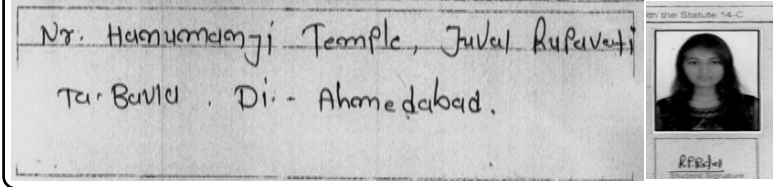 Nr. Hanumanji Temple, Juval Rupavati
Ta. Bavla. Di. - Ahmedabad.
th the Statute 14-C
R.P.Patel
Student Signature